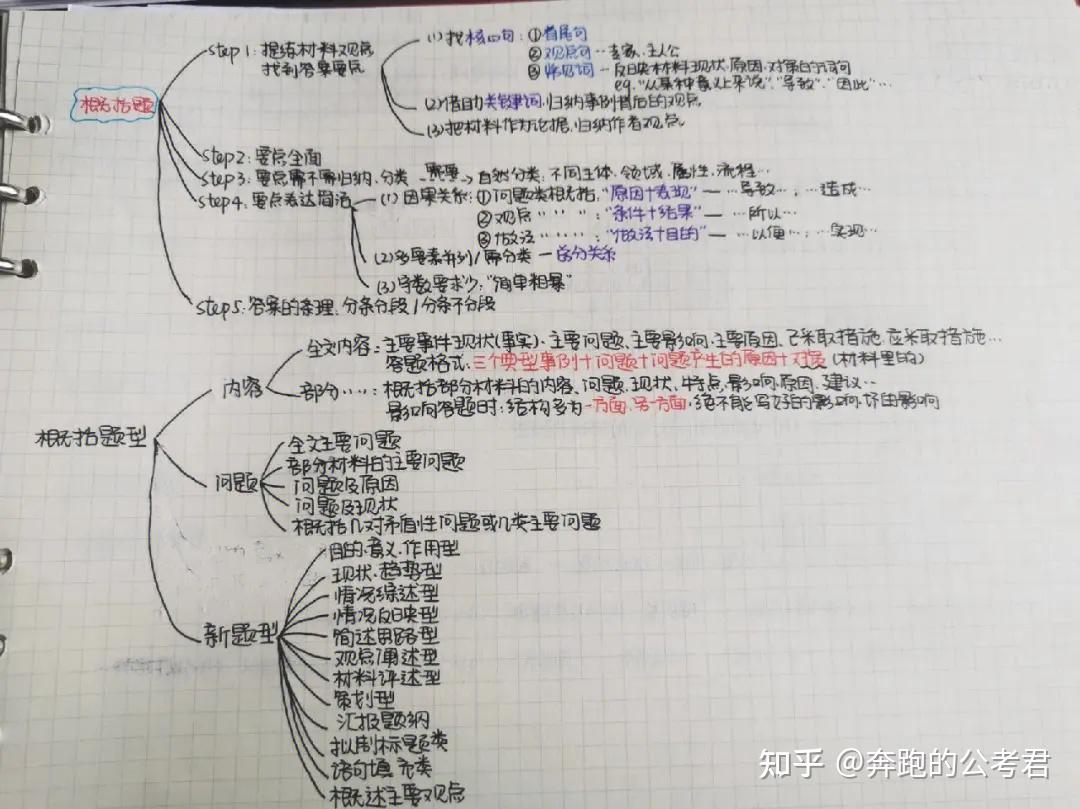 概括题
step 1: 提练材料观点
找到答案要点
(1) 找核心句: ① 首尾句
② 观点句 -- 专家、主人公
③ 常见词 -- 反映材料现状、原因、对策的词句
eg. "从某种意义上来说"、"导致"、"因此"…
(2) 借助关键词, 归纳事例背后的观点
(3) 把材料作为论据, 归纳作者观点
step 2: 要点全面
step 3: 要点需不需归纳、分类 需要→ 自然分类: 不同主体、领域、属性、流程…
step 4: 要点表达简洁
(1) 因果关系: ①问题类概括: "原因+表现" — …导致…, …造成…
② 观点 〃 〃 〃: "条件+结果" — …所以…
③ 做法 〃 〃 〃: "做法+目的" — …以便…; …实现…
(2) 多要素并列/需分类 — 总分关系
(3) 字数要求少: "简单粗暴"
step 5: 答案的条理, 分条分段/分条不分段
概括题型
内容
全文内容: 主要事件现状(事实)、主要问题、主要影响、主要原因、已采取措施、应采取措施…
答题格式: 三个典型事例+问题+问题产生的原因+对策 (材料里的)
部分…: 概括部分材料的内容、问题、现状、特点、影响、原因、建议…
影响答题时: 结构多为一方面, 另一方面, 绝不能写好的影响、坏的影响
问题
全文主要问题
部分材料的主要问题
问题及原因
问题及现状
概括几对矛盾性问题或几类主要问题
新题型
目的、意义、作用型
现状、趋势型
情况综述型
情况反映型
简述思路型
观点阐述型
材料评述型
策划型
汇报题纲
拟制标题类
语句填充类
概述主要观点
知乎 @奔跑的公考君